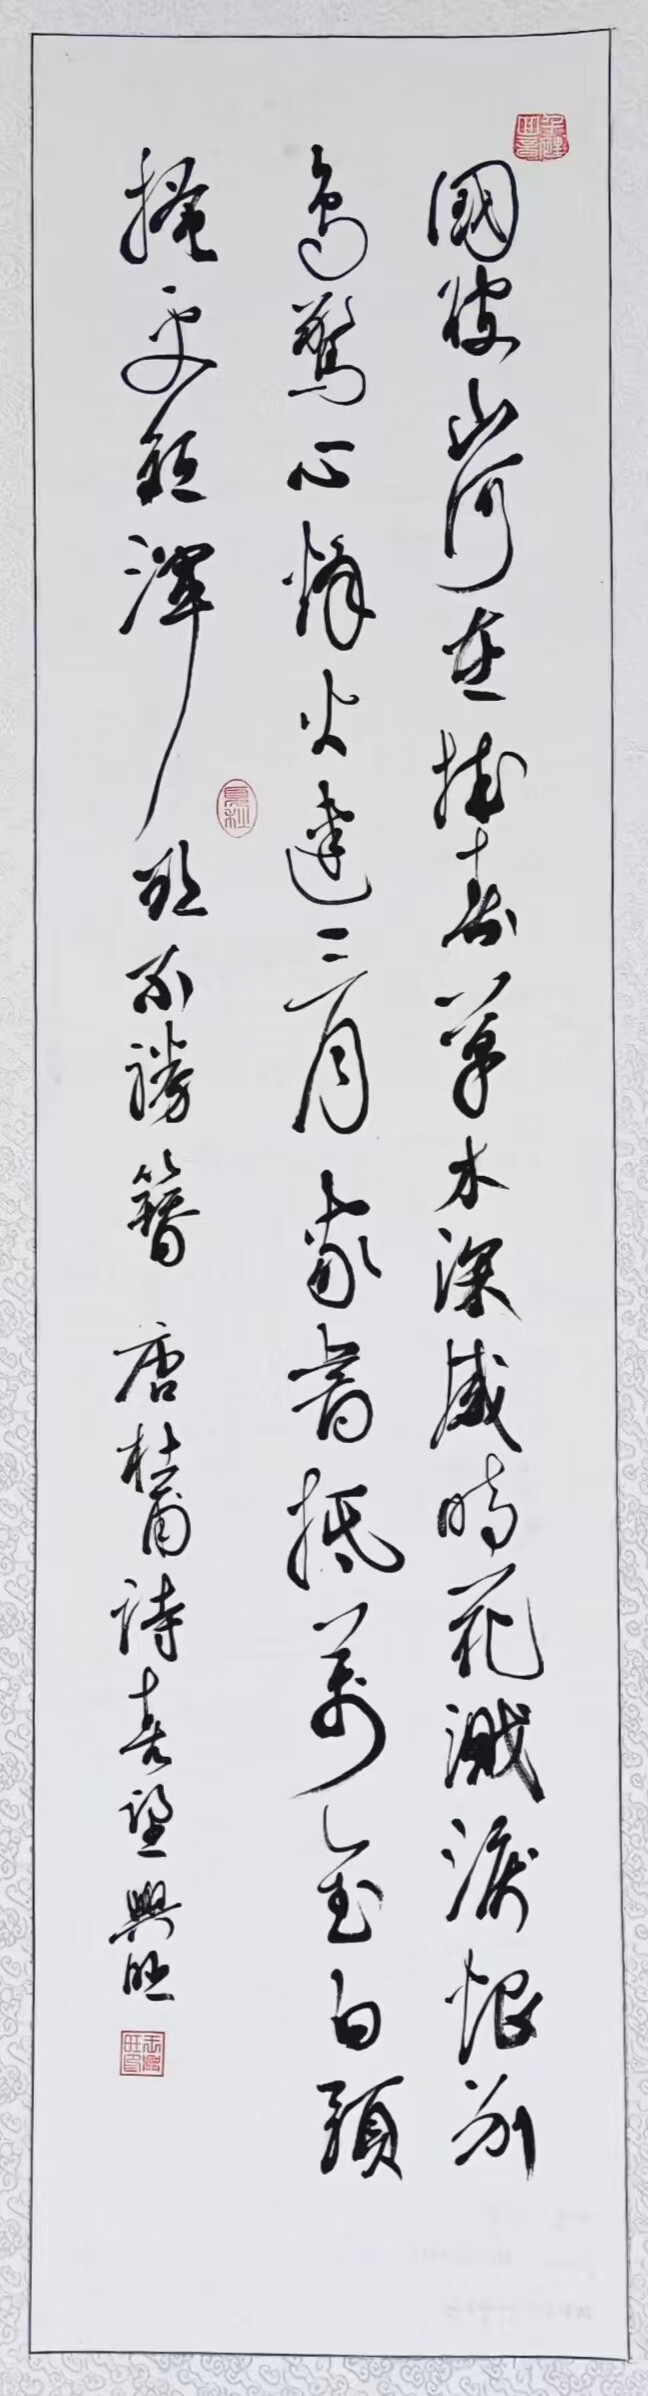 國破山河在城春草木深感時花濺淚恨別
鳥驚心烽火連三月家書抵萬金白頭
搔更短渾欲不勝簪 唐杜甫詩春望 興旺